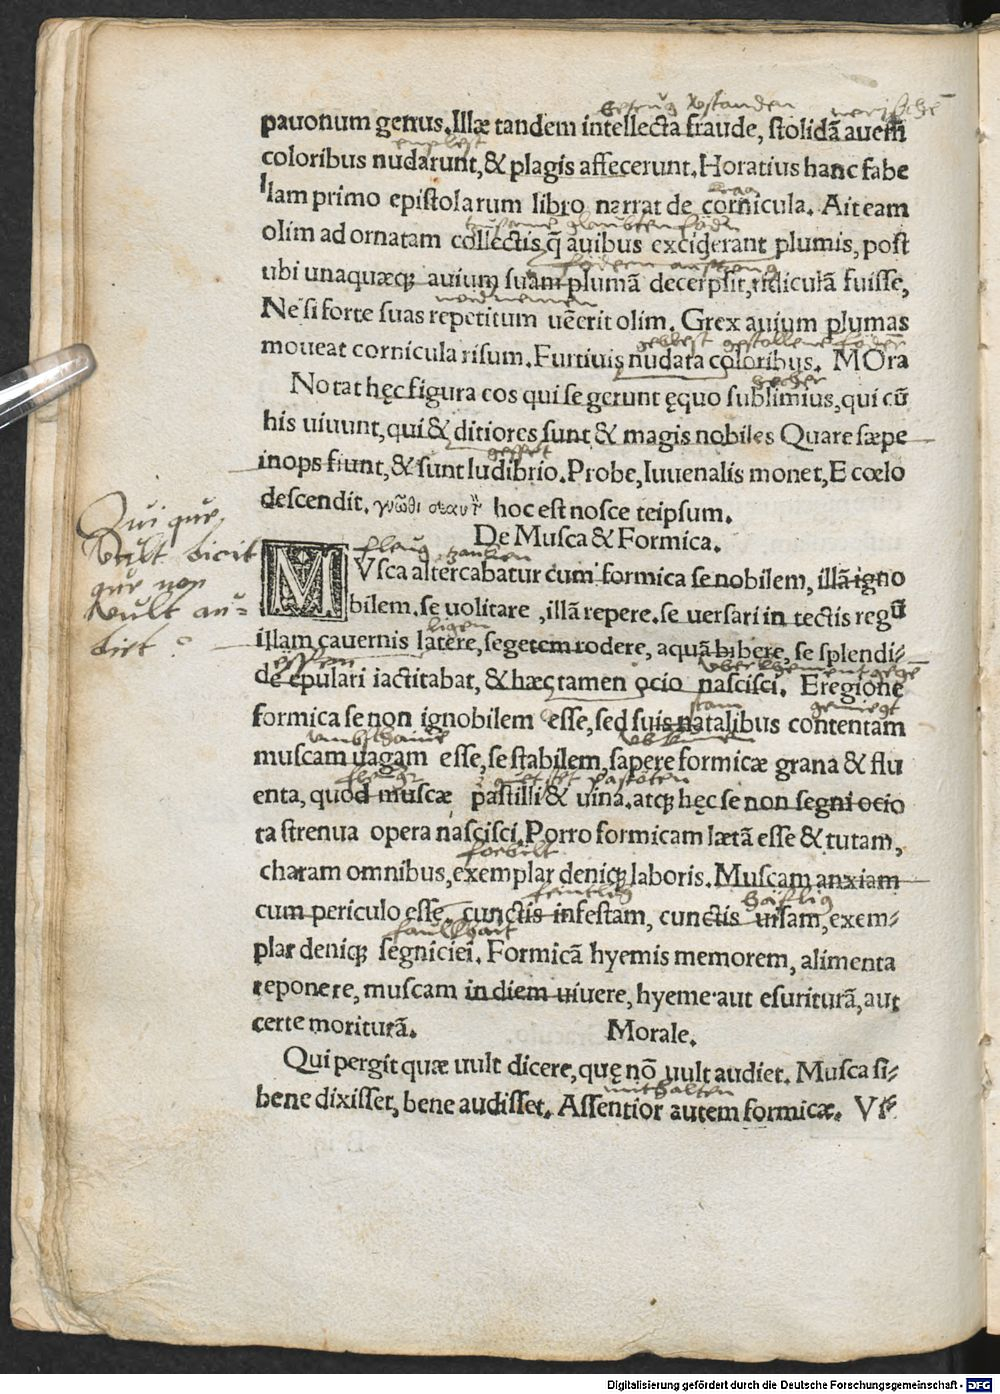 betrug vstanden
pauonum genus. Illæ tandem intellecta fraude, stolidã auem
coloribus nudarunt, & plagis affecerunt. Horatius hanc fabe
llam primo epistolarum libro narrat de cornicula. Ait eam
olim ad ornatam collectis, q̃ auibus exciderant plumis, post
ubi unaquæqꝫ auium suam plumã decerpsit, ridiculã fuisse,
Ne si forte suas repetitum uẽerit olim. Grex auium plumas
moueat cornicula risum. Furtiuis nudata coloribus. MOra
hocher
Notat hęc figura eos qui se gerunt ęquo sublimius, qui cũ
his uiuunt, qui & ditiores sunt & magis nobiles Quare sæpe
gespet
inops fiunt, & sunt ludibrio. Probe, Iuuenalis monet, E cœlo
descendit. γνῶθι σεαυτ̀ hoc est nosce teipsum.
De Musca & Formica.
Qui que
vult dicit
que non
vult au=
diet
fleug zancken
MVsca altercabatur cum formica se nobilem, illã igno
bilem. se uolitare, illã repere. se uersari in tectis regũ
ligen
illam cauernis latere, segetem rodere, aquã bibere, se splendi-
essen
de epulari iactitabat, & hæc tamen ocio nascisci. E regione
stam
formica se non ignobilem esse, sed suis natalibus contentam
muscam uagam esse, se stabilem, sapere formicæ grana & flu
pastoten
enta, quod muscæ pastilli & uina. atqꝫ hęc se non segni ocio
ta strenua opera nascisci. Porro formicam lætã esse & tutam,
forbilt
charam omnibus, exemplar deniqꝫ laboris. Muscam anxiam
feintlig
cum periculo esse, cunctis infestam, cunctis uisam, exem-
faulkhait
plar deniqꝫ segniciei. Formicã hyemis memorem, alimenta
reponere, muscam in diem uiuere, hyeme aut esuriturã, aut
certe moriturã. Morale.
Qui pergit quæ uult dicere, quę nõ uult audiet. Musca si-
mithalten
bene dixisset, bene audisset. Assentior autem formicæ. Vi-
Digitalisierung gefördert durch die Deutsche Forschungsgemeinschaft - DFG